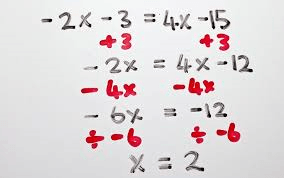 - 2x - 3 = 4x - 15
+3 +3
- 2x = 4x - 12
- 4x - 4x
- 6x = -12
÷ -6 ÷ -6
x = 2